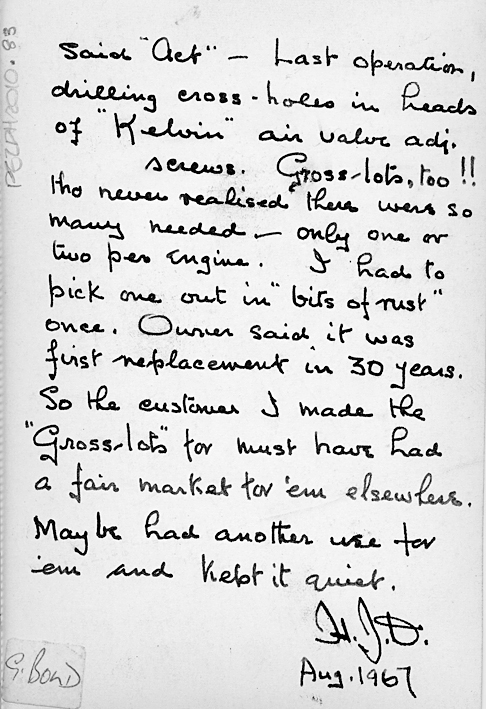 said "Act" — Last operation,
drilling cross-holes in heads
of "Kelvin" air valve adj.
screws. Gross-lots, too !!
tho never realised there were so
many needed — only one or
two per engine. I had to
pick one out in "bits of rust"
once. Owner said it was
first replacement in 30 years.
So the customer I made the
"Gross-lots" for must have had
a fair market for 'em elsewhere.
Maybe had another use for
'em and kept it quiet.
H.J.D.
Aug. 1967
G. Bond